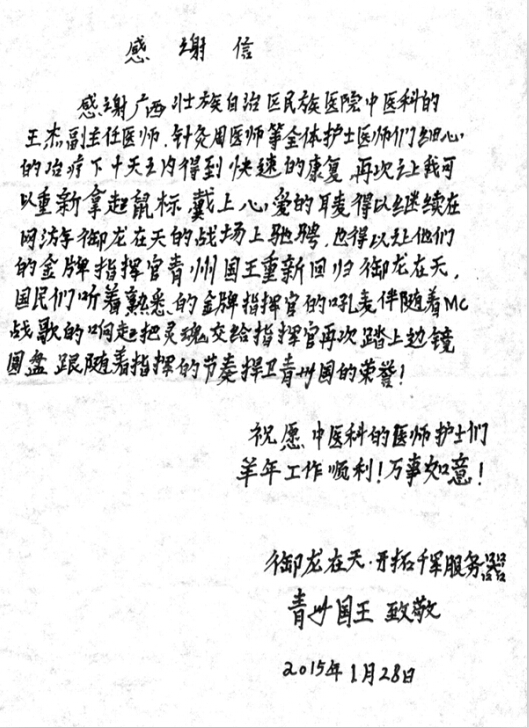 感谢信
感谢广西壮族自治区民族医院中医科的
王杰副主任医师.针灸周医师等全体护士医师们细心
的治疗下十天之内得到快速的康复,再次让我可
以重新拿起鼠标,戴上心爱的耳麦得以继续在
网游御龙在天的战场上驰聘,也得以让他们
的金牌指挥官青州国王重新回归御龙在天.
国民们听着熟悉的金牌指挥官的吼麦伴随着MC
战歌的响起把灵魂交给指挥官再次踏上边镜
国盆 跟随着指挥的节奏捍卫青州国的荣誉!
祝愿中医科的医师护士们
羊年工作顺利!万事如意!
御龙在天.开拓 服务器
青州国王 致敬
2015年1月28日